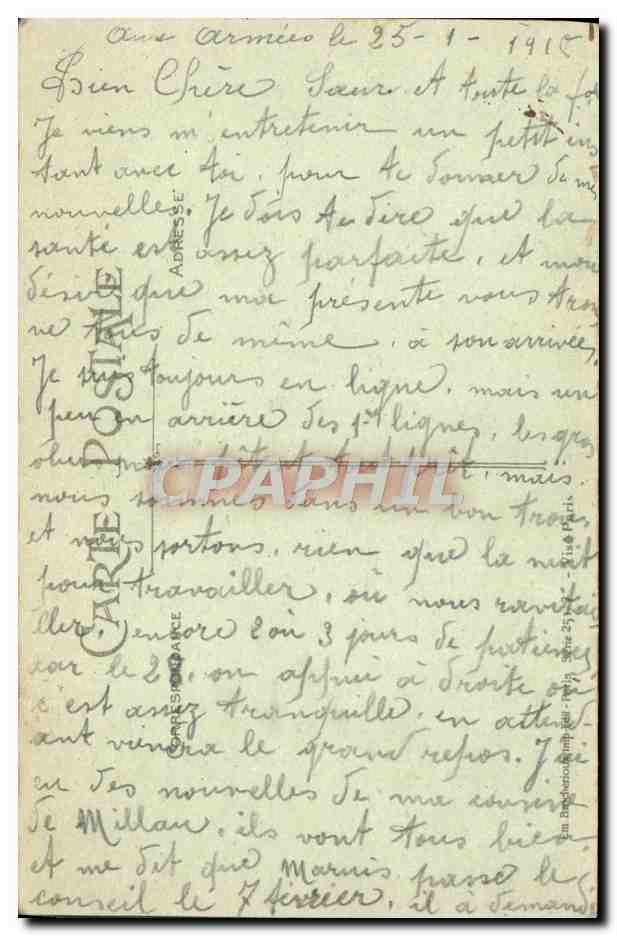 Aux Armées le 25-1-191
Bien Chère Sœur et toute la fa
Je viens m'entretenir un petit ins
tant avec toi, pour te donner de mes
nouvelles. Je dois te dire que la
santé est assez parfaite, et mon
désir que ma présente vous trou
ve tous de même, à son arrivée,
Je suis toujours en ligne, mais un
peu en arrière des 1res lignes, les gros
obus mais
nous sommes dans un bon trous
et nous sortons, rien que la nuit
pour travailler, où nous ravitai
ller, encore 2 où 3 jours de patience
car le 28, on appui à droite où
c'est assez tranquille, en attend-
ant viendra le grand repos. J'ai
eu des nouvelles de ma cousine
de Millau, ils vont tous bien,
et me dit que Marius passe le
conseil le 7 février, il à demandé
CARTE POSTALE
CORRESPONDANCE
ADRESSE
Visé Paris
CPAPHIL